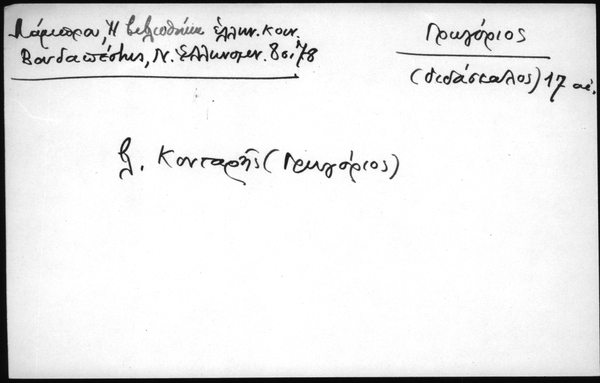 Λάμπρου, Ἡ βιβλιοθήκη ἑλλην. κοιν.
Βουδαπέστης, Ν. Ἑλληνομν. 8 σ. 78
Γρηγόριος
(διδάσκαλος) 17 αἰ.
βλ. Κονταρῆς (Γρηγόριος)